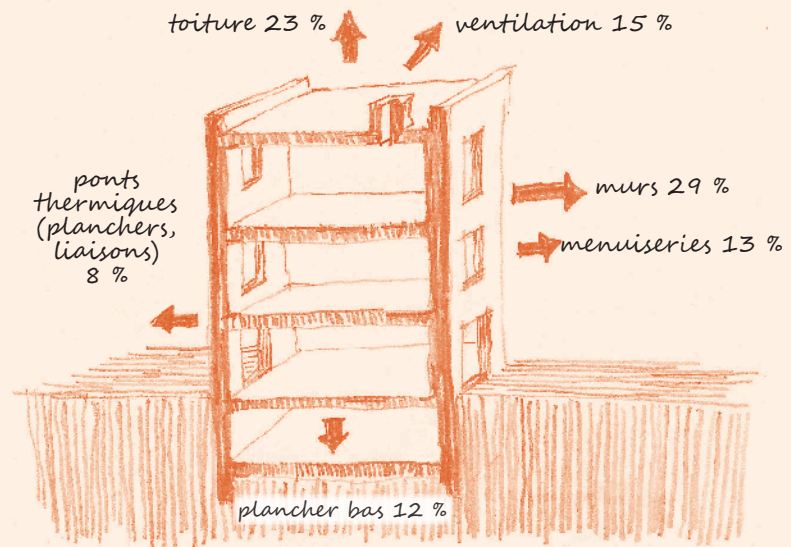 toiture 23 %
ventilation 15 %
ponts
thermiques
(planchers,
liaisons)
8 %
murs 29 %
menuiseries 13 %
plancher bas 12 %